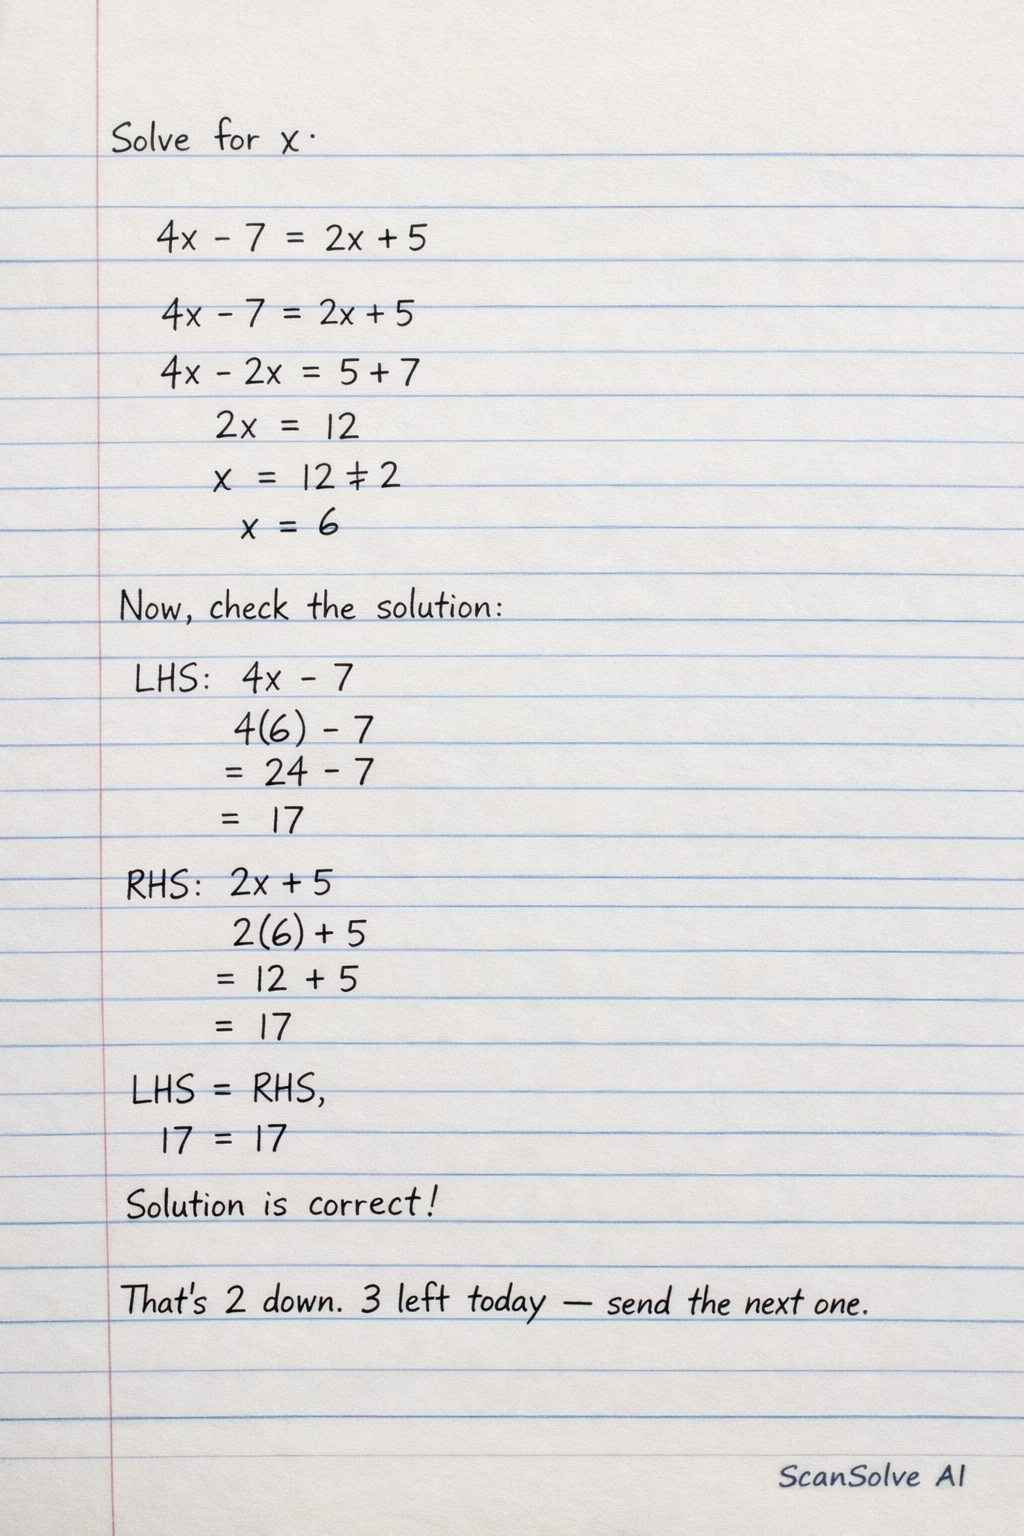 Solve for x.
4x - 7 = 2x + 5
4x - 7 = 2x + 5
4x - 2x = 5 + 7
2x = 12
x = 12 ‡ 2
x = 6
Now, check the solution:
LHS: 4x - 7
4(6) - 7
= 24 - 7
= 17
RHS: 2x + 5
2(6) + 5
= 12 + 5
= 17
LHS = RHS,
17 = 17
Solution is correct!
That's 2 down. 3 left today — send the next one.
ScanSolve AI